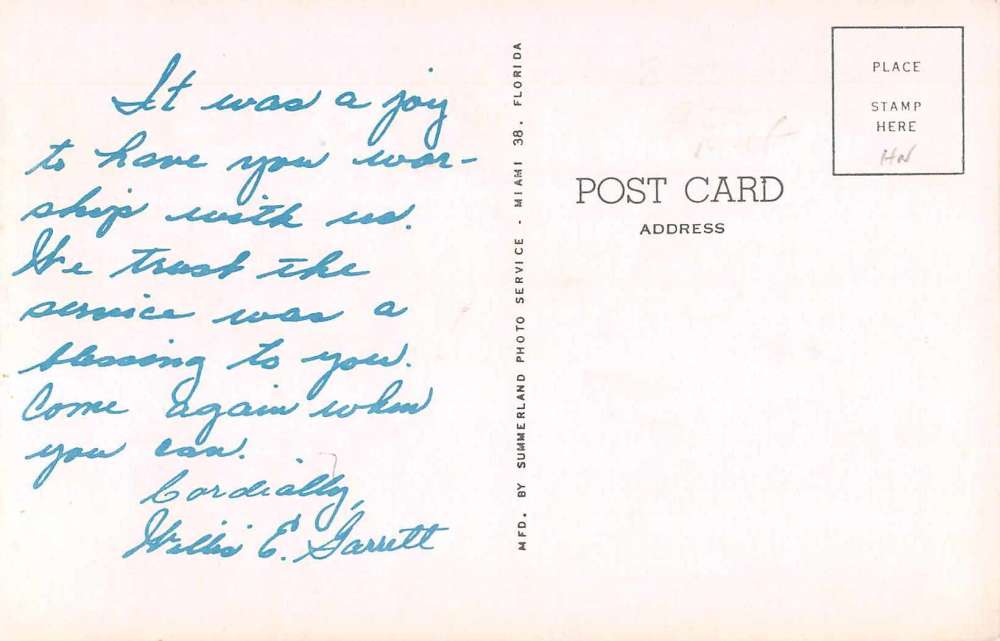 It was a joy
to have you wor-
ship with us.
We trust the
service was a
blessing to you.
Come again when
you can.
Cordially,
Willis E. Garrett
MFD. BY SUMMERLAND PHOTO SERVICE - MIAMI 38, FLORIDA
POST CARD
ADDRESS
PLACE
STAMP
HERE
HN